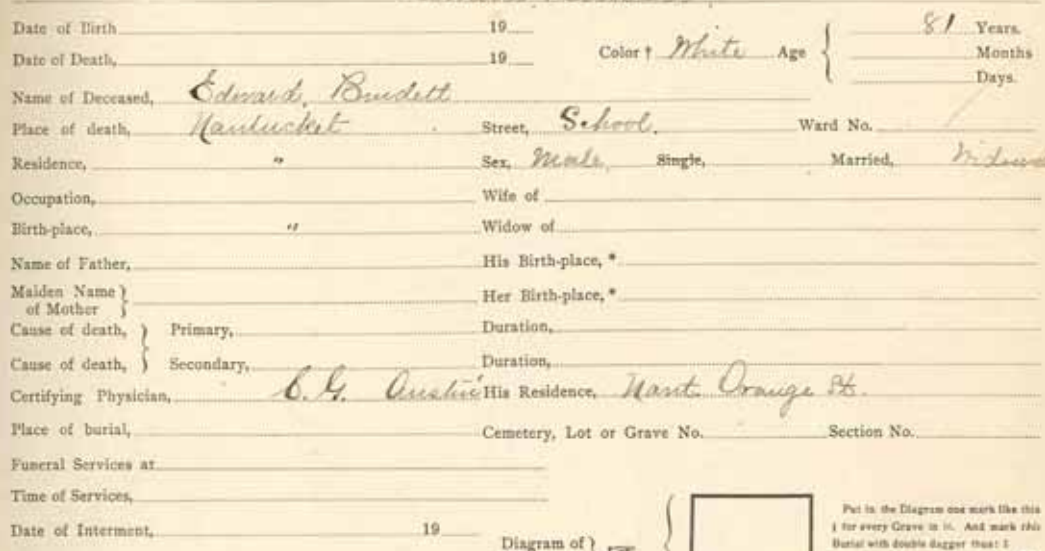 Date of Birth 19
Color † White Age 81 Years.
Date of Death, 19 Months
Days.
Name of Deceased, Edward Burdett
Place of death, Nantucket Street, School. Ward No.
Residence, " Sex, Male Single, Married, Widowed
Occupation, Wife of
Birth-place, " Widow of
Name of Father, His Birth-place, *
Maiden Name } Her Birth-place, *
of Mother }
Cause of death, } Primary, Duration,
Cause of death, } Secondary, Duration,
Certifying Physician, C. G. Austin His Residence, Nant. Orange St.
Place of burial, Cemetery, Lot or Grave No. Section No.
Funeral Services at
Time of Services,
Date of Interment, 19
Diagram of }
Put in the Diagram one mark like this
† for every Grave in it. And mark this
Burial with double dagger thus: ‡